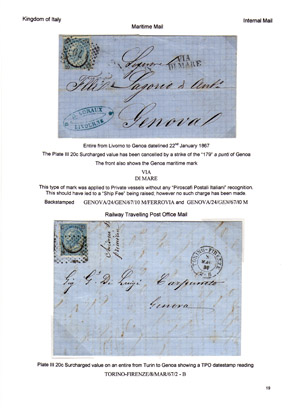 Kingdom of Italy
Internal Mail
Maritime Mail
VIA
DI MARE
LIVORNO
Genova
Entire from Livorno to Genoa datelined 22nd January 1867
The Plate III 20c Surcharged value has been cancelled by a strike of the "179" a punti of Genoa
The front also shows the Genoa maritime mark
VIA
DI MARE
This type of mark was applied to Private vessels without any "Piroscafi Postali Italiani" recognition.
This should have led to a "Ship Fee" being raised, however no such charge has been made.
Backstamped GENOVA/24/GEN/67/10 M/FERROVIA and GENOVA/24/GEN/67/8 M
Railway Travelling Post Office Mail
TORINO-FIRENZE
Genova
Plate III 20c Surcharged value on an entire from Turin to Genoa showing a TPO datestamp reading
TORINO-FIRENZE/8/MAR/67/2 - B